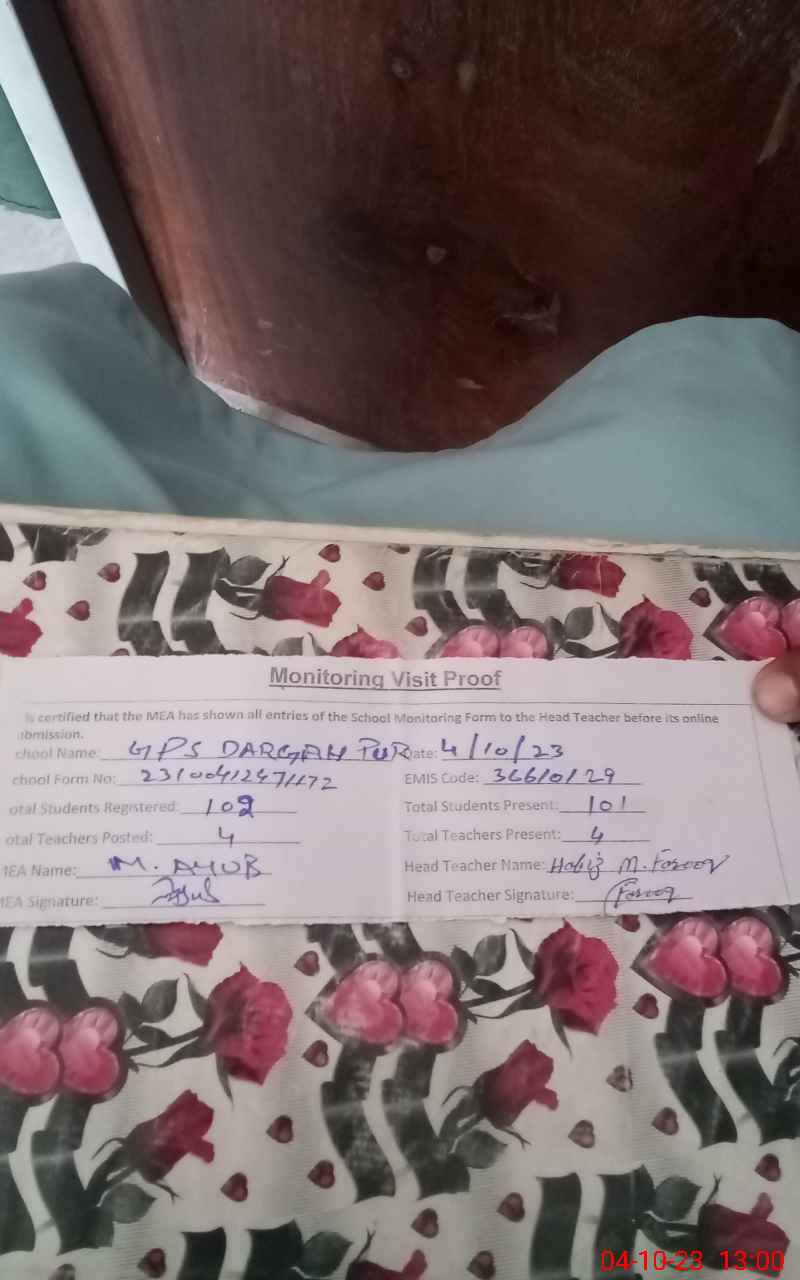 Monitoring Visit Proof
is certified that the MEA has shown all entries of the School Monitoring Form to the Head Teacher before its online
ubmission.
chool Name: GPS DARGAH PUR Date: 4/10/23
chool Form No: EMIS Code: 36610129
otal Students Registered: 102 Total Students Present: 101
otal Teachers Posted: 4 Total Teachers Present: 4
MEA Name: M. AYUB Head Teacher Name: Hafiz M. Farooq
MEA Signature: Ayub Head Teacher Signature: Farooq
04-10-23 13:00